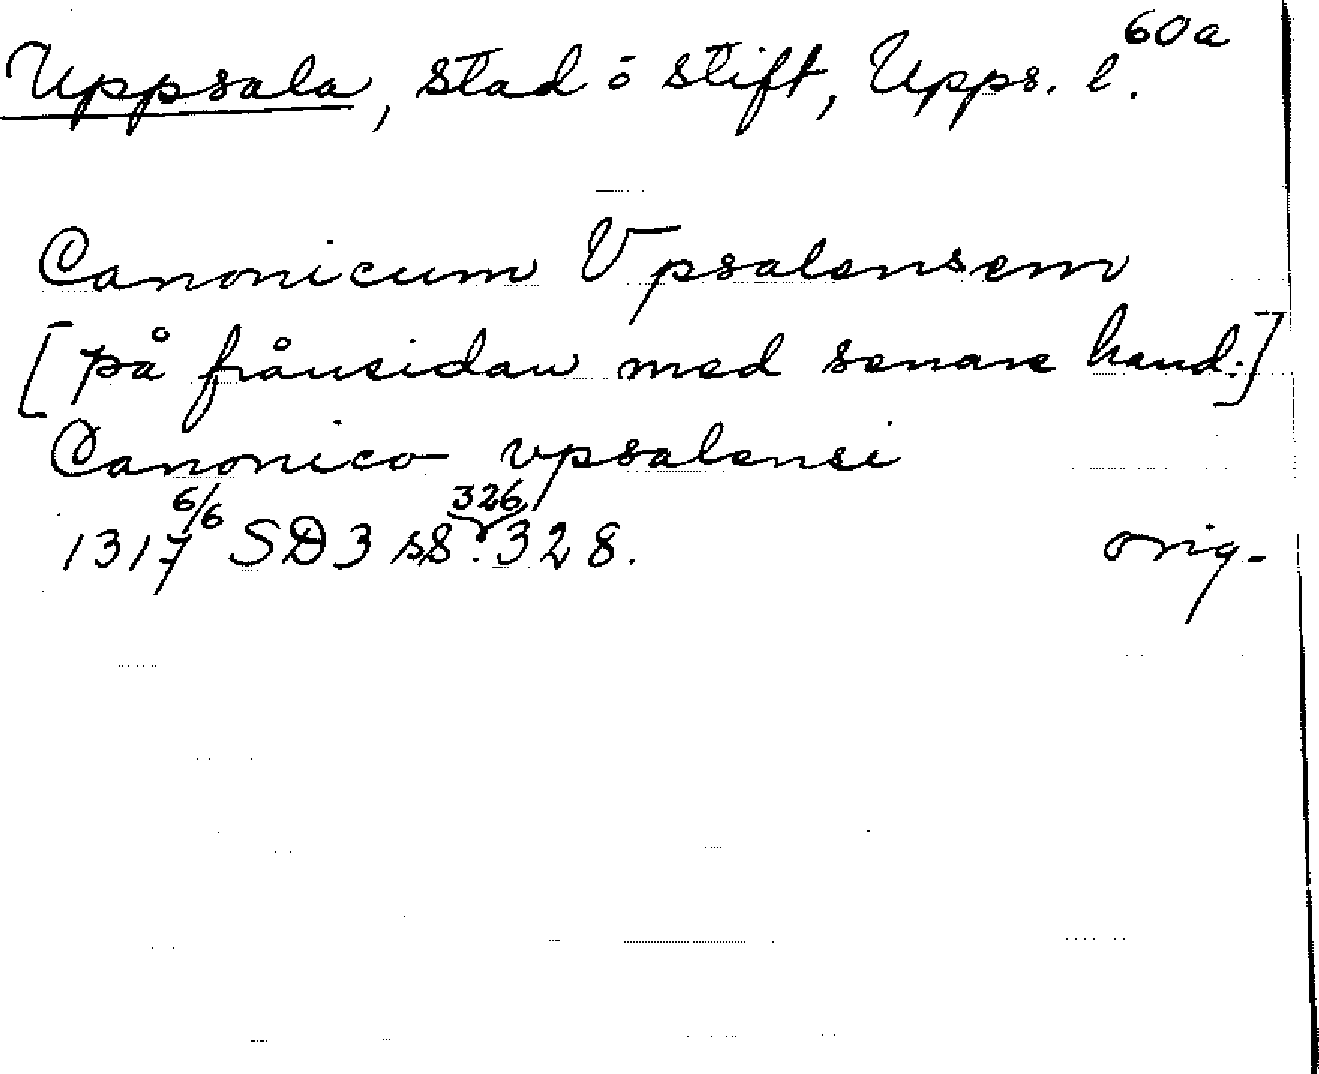 60a
Uppsala, stad o stift, Upps. l.
Canonicum Vpsalensem
[på frånsidan med senare hand:]
Canonico vpsalensi
1317 6/6 SD3 ss. 326, 328. orig.